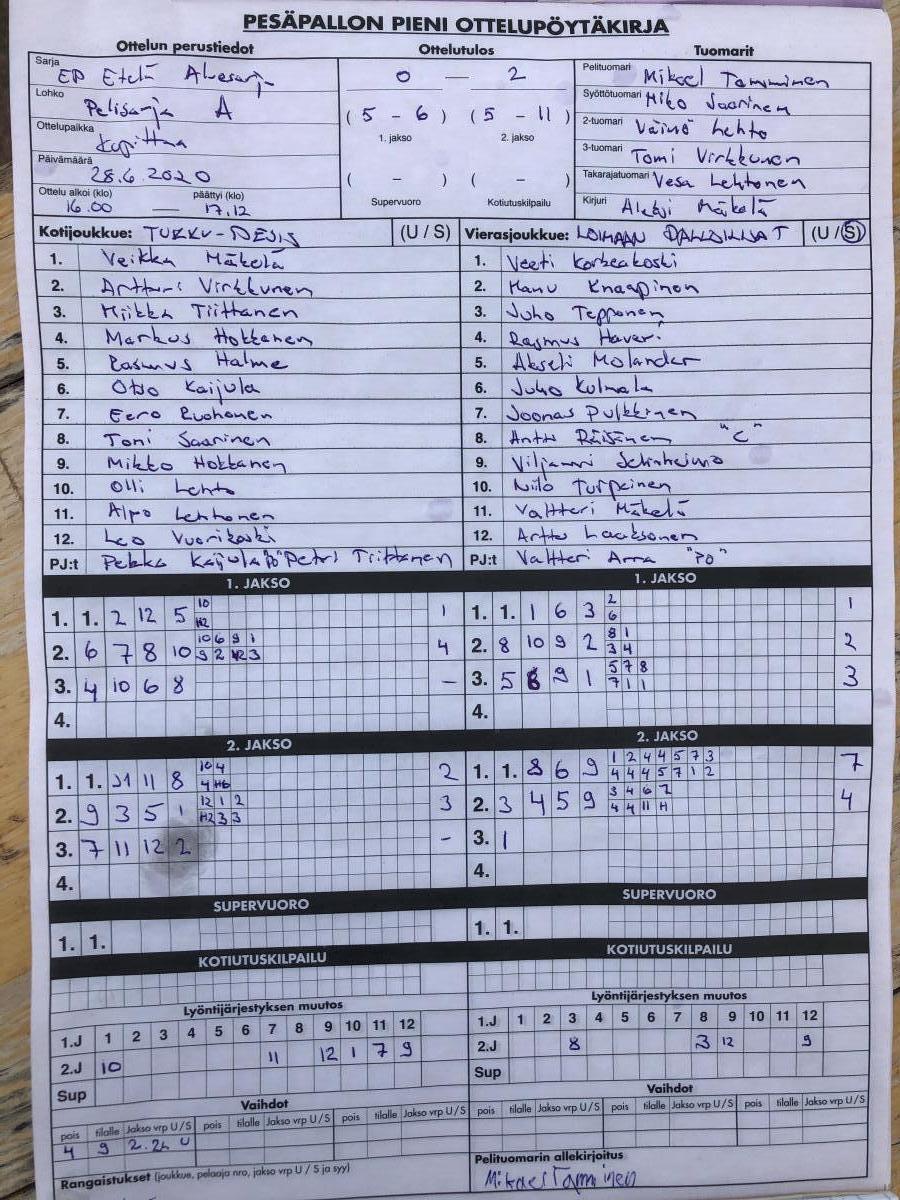 PESÄPALLON PIENI OTTELUPÖYTÄKIRJA
Ottelun perustiedot Ottelutulos Tuomarit
Sarja EP Etelä Aluesarja
Lohko Pelisarja A
Ottelupaikka Kupittaa
Päivämäärä 28.6.2020
Ottelu alkoi (klo) päättyi (klo)
16.00 — 17.12
0 — 2
( 5 - 6 ) ( 5 - 11 )
1. jakso 2. jakso
( - ) ( - )
Supervuoro Kotiutuskilpailu
Pelituomari Mikael Tamminen
Syöttötuomari Niko Saarinen
2-tuomari Väinö Lehto
3-tuomari Tomi Virkkunen
Takarajatuomari Vesa Lehtonen
Kirjuri Aleksi Mäkelä
Kotijoukkue: TURKU-PESIS (U / S)
1. Veikka Mäkelä
2. Artturi Virkkunen
3. Miikka Tiittanen
4. Markus Hokkanen
5. Rasmus Halme
6. Otso Kaijula
7. Eero Ruohonen
8. Toni Saarinen
9. Mikko Hokkanen
10. Olli Lehto
11. Alpo Lehtonen
12. Leo Vuorikoski
PJ:t Pekka Kaijula "PJ" Petri Tiittanen
Vierasjoukkue: LOIMAAN PALLOILIJAT (U / S)
1. Veeti Korkeakoski
2. Manu Knaapinen
3. Juho Tepponen
4. Rasmus Haveri
5. Akseli Molander
6. Juho Kulmala
7. Joonas Pulkkinen
8. Anttu Räisänen "C"
9. Viljami
10. Niilo Turpeinen
11. Valtteri Mäkelä
12. Arttu Laaksonen
PJ:t Valtteri Arra "PJ"
1. JAKSO
1. 1. 2 12 5 10 1
H2
2. 6 7 8 10 10 6 9 1 4
9 2 12 3
3. 4 10 6 8 -
4.
1. JAKSO
1. 1. 1 6 3 2 1
6
2. 8 10 9 2 8 1 2
3 4
3. 5 8 9 1 5 7 8 3
7 1 1
4.
2. JAKSO
1. 1. 11 11 8 10 4 2
4 H6
2. 9 3 5 1 12 1 2 3
H2 3 3
3. 7 11 12 2 -
4.
2. JAKSO
1. 1. 8 6 9 1 2 4 4 5 7 3 7
4 4 4 5 7 1 2
2. 3 4 5 9 3 4 6 7 4
4 4 11 H
3. 1
4.
SUPERVUORO
1. 1.
SUPERVUORO
1. 1.
KOTIUTUSKILPAILU
KOTIUTUSKILPAILU
Lyöntijärjestyksen muutos
1.J 1 2 3 4 5 6 7 8 9 10 11 12
2.J 10 11 12 1 7 9
Sup
Lyöntijärjestyksen muutos
1.J 1 2 3 4 5 6 7 8 9 10 11 12
2.J 8 3 12 9
Sup
Vaihdot
pois tilalle Jakso vrp U/S pois tilalle Jakso vrp U/S pois tilalle Jakso vrp U/S
4 9 2.2L U
Vaihdot
pois tilalle Jakso vrp U/S pois tilalle Jakso vrp U/S pois tilalle Jakso vrp U/S
Rangaistukset (joukkue, pelaaja nro, jakso vrp U / S ja syy)
Pelituomarin allekirjoitus
Mikael Tamminen